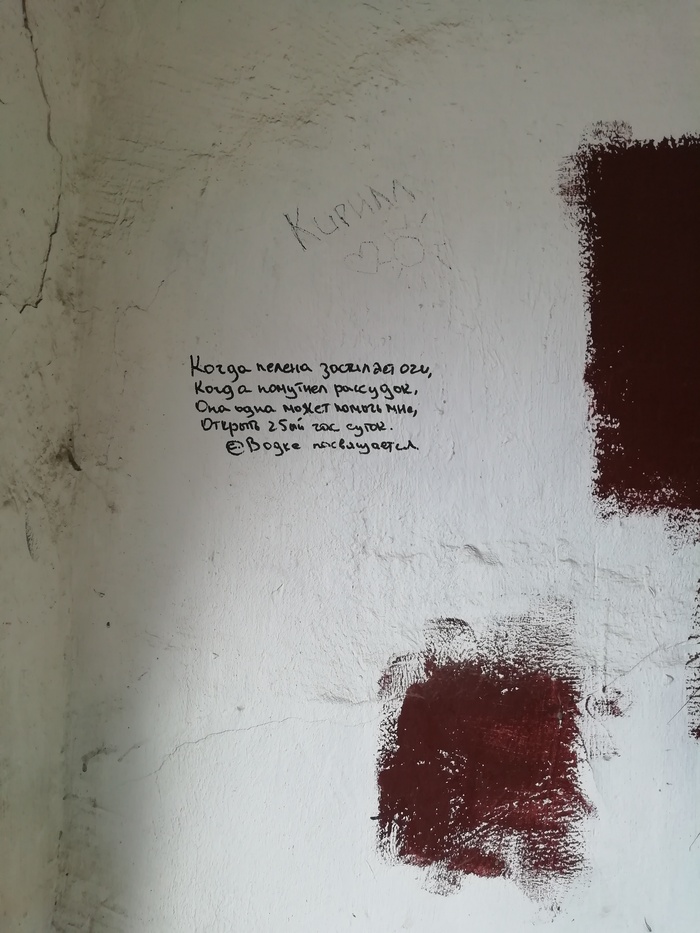 Кирилл
Когда пелена застилает очи,
Когда помутнел рассудок,
Она одна может помочь мне,
Открыть 25ый час суток.
©Водке посвящается.